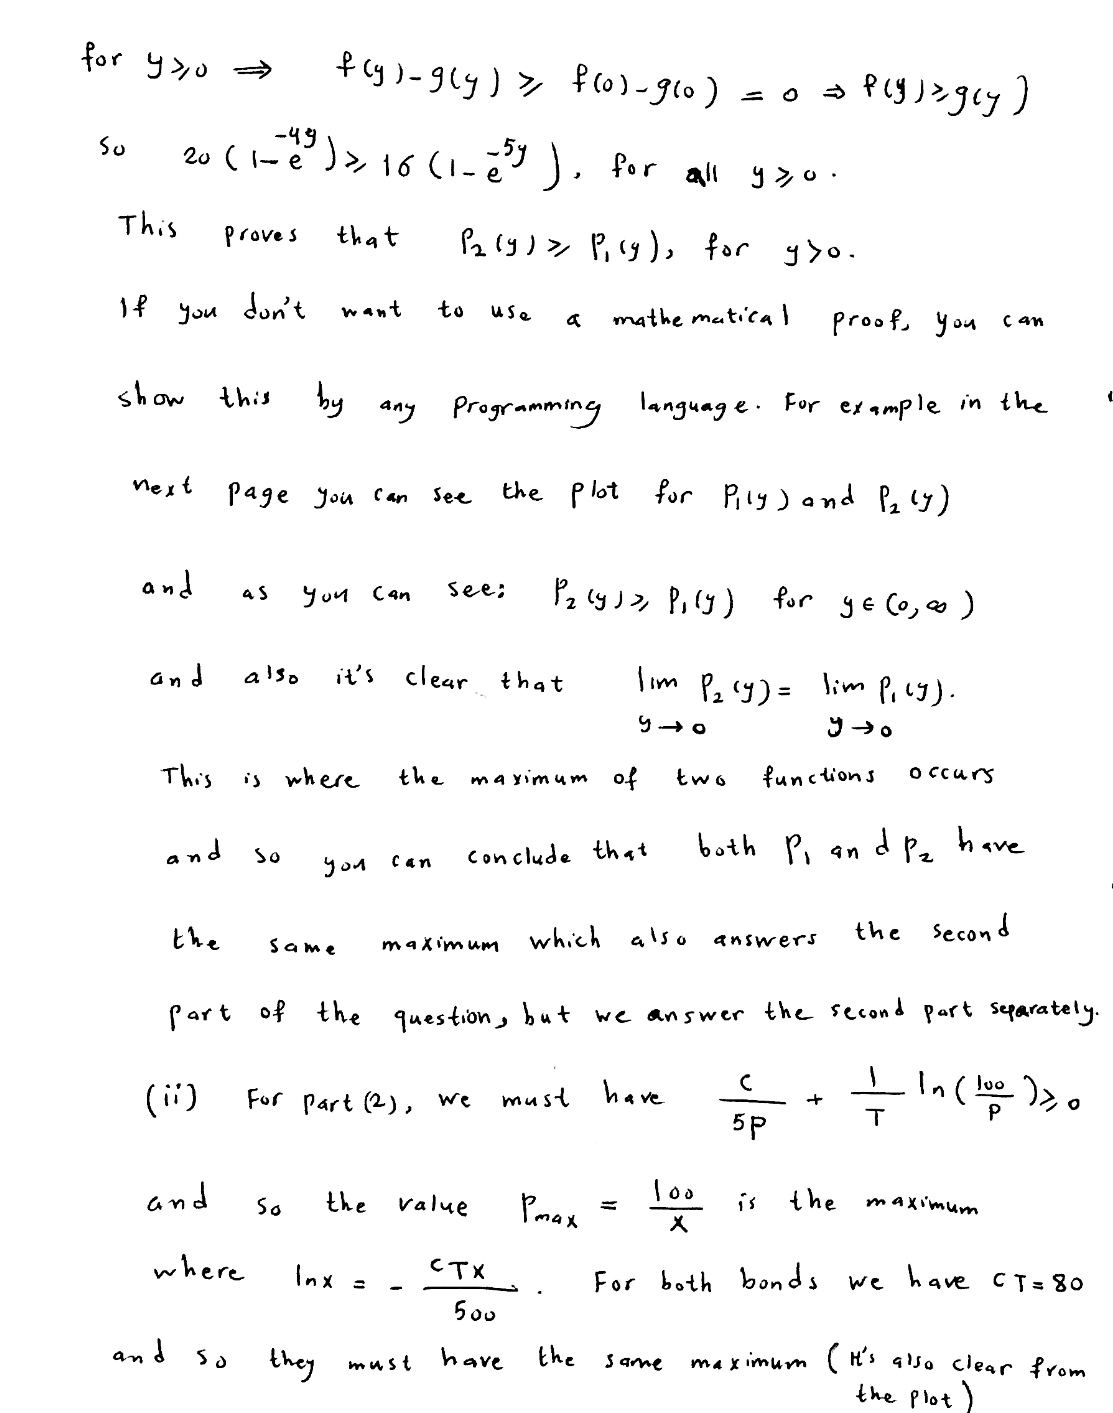 for y ⩾ 0 ⇒ f(y) - g(y) ⩾ f(0) - g(0) = 0 ⇒ f(y) ⩾ g(y)
so 20 (1 - e^{-4y}) ⩾ 16 (1 - e^{-5y}), for all y ⩾ 0.
This proves that P₂(y) ⩾ P₁(y), for y > 0.
If you don't want to use a mathematical proof, you can
show this by any programming language. For example in the
next page you can see the plot for P₁(y) and P₂(y)
and as you can see: P₂(y) ⩾ P₁(y) for y ∈ (0, ∞)
and also it's clear that lim_{y→0} P₂(y) = lim_{y→0} P₁(y).
This is where the maximum of two functions occurs
and so you can conclude that both P₁ and P₂ have
the same maximum which also answers the second
part of the question, but we answer the second part separately.
(ii) For part (2), we must have C/5P + 1/T ln(100/P) ⩾ 0
and so the value P_max = 100/x is the maximum
where lnx = - CTX/500. For both bonds we have CT = 80
and so they must have the same maximum (It's also clear from
the plot)